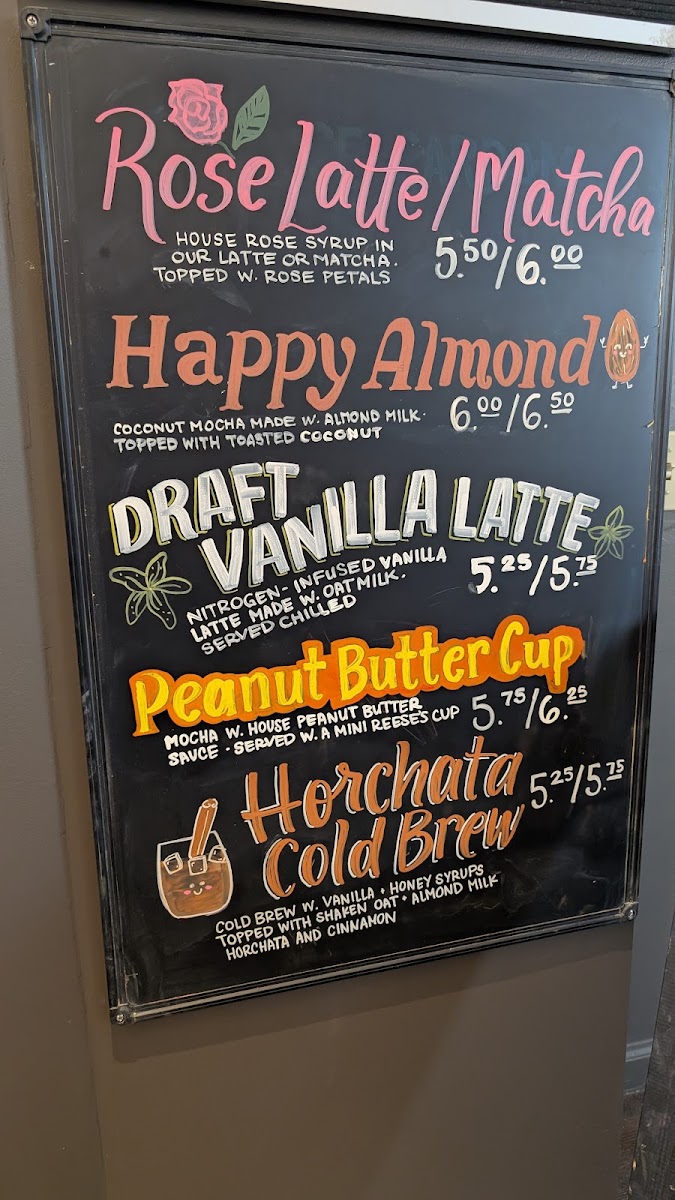 Rose Latte/Matcha
HOUSE ROSE SYRUP IN
OUR LATTE OR MATCHA.
TOPPED W. ROSE PETALS
5.50/6.00
Happy Almond
COCONUT MOCHA MADE W. ALMOND MILK.
TOPPED WITH TOASTED COCONUT
6.00/6.50
DRAFT
VANILLA LATTE
NITROGEN-INFUSED VANILLA
LATTE MADE W. OATMILK.
SERVED CHILLED
5.25/5.75
Peanut Butter Cup
MOCHA W. HOUSE PEANUT BUTTER
SAUCE • SERVED W. A MINI REESE'S CUP
5.75/6.25
Horchata
Cold Brew
5.25/5.75
COLD BREW W. VANILLA + HONEY SYRUPS
TOPPED WITH SHAKEN OAT + ALMOND MILK
HORCHATA AND CINNAMON